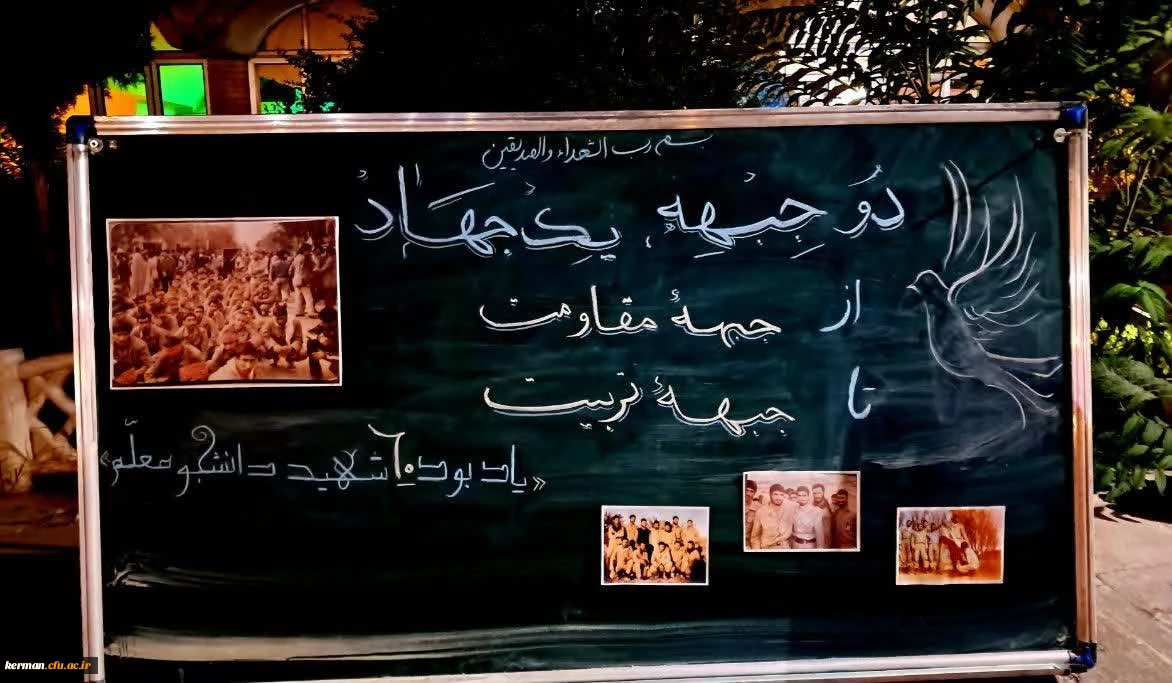 بسم رب الشهداء والصدیقین
دُو جِبْهِه، یِکْ جهَادْ
از جبههٔ مقاومت
تا جبههٔ تربیت
«یاد بود ۶۰ شهید دانشجو معلّم»
kerman.cfu.ac.ir